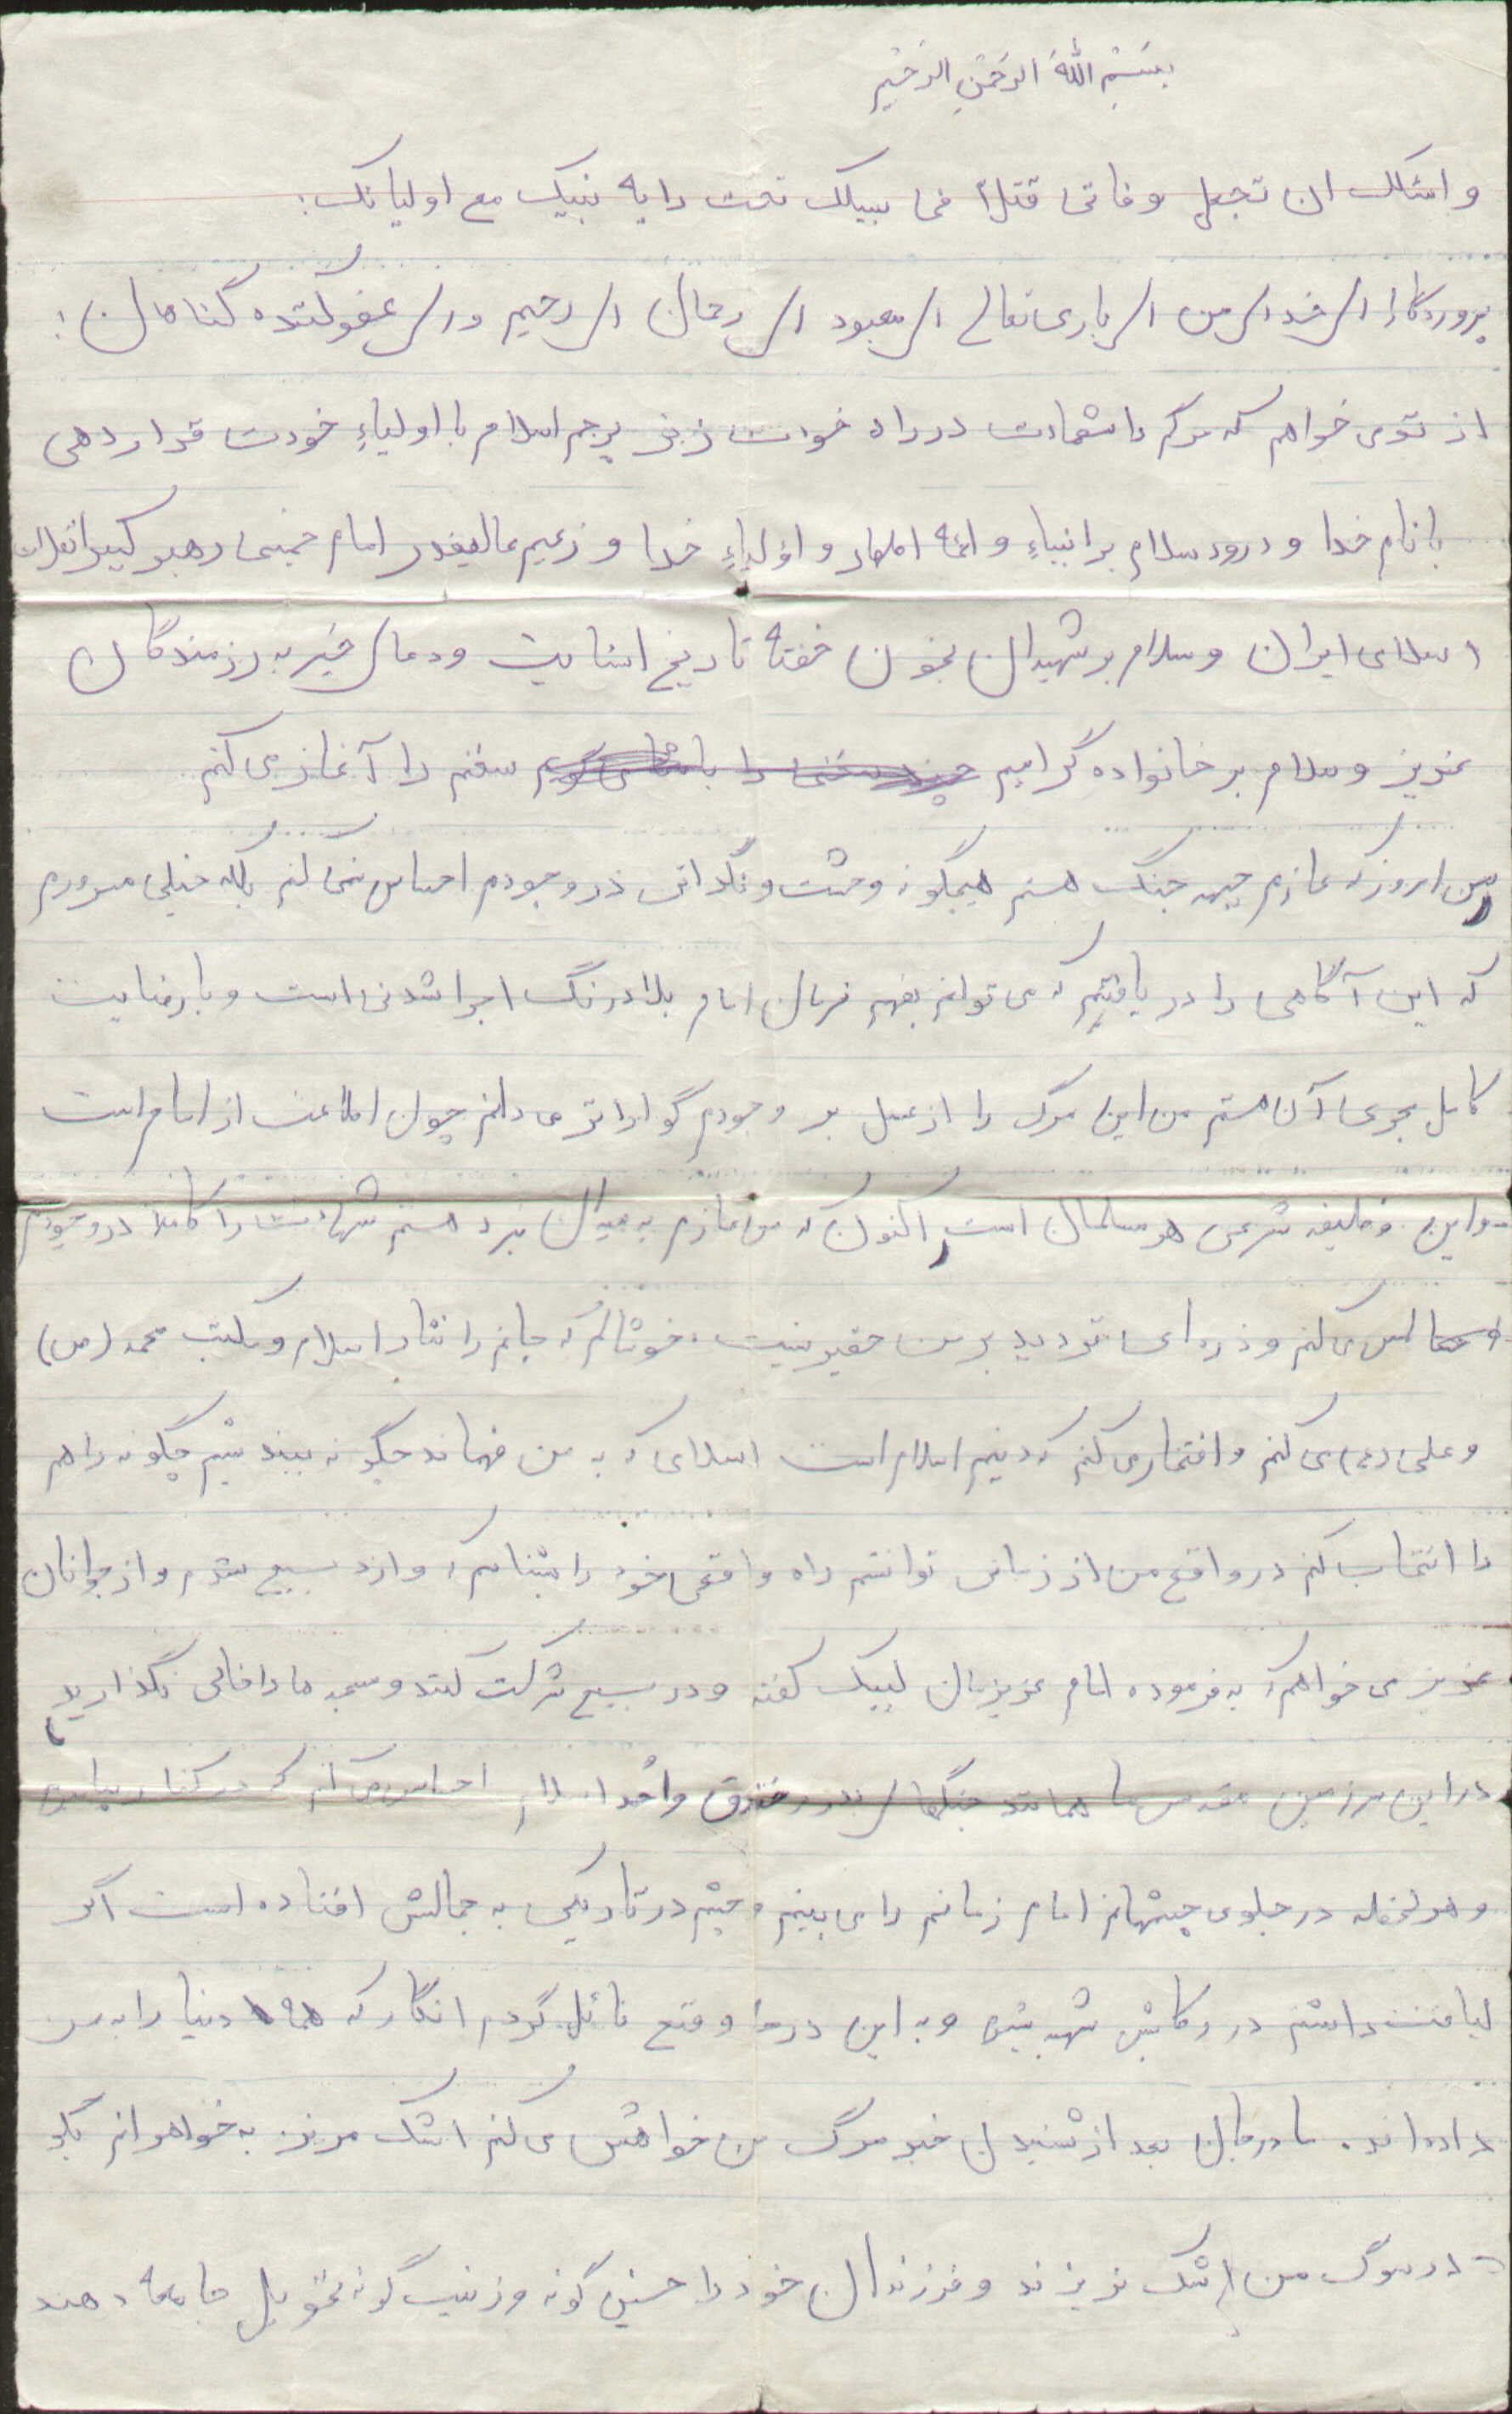 بِسْمِ اللهِ الرَحْمنِ الرَحیمِ
و اسئلک ان تجعل وفاتی قتلاً فی سبیلک تحت رایه نبیک مع اولیائک:
پروردگارا ای خدای من ای باری تعالی ای معبود ای رحمان ای رحیم و ای عفو کننده گناهان:
از تو می خواهم که مرگم را شهادت در راه خودت زیر پرچم اسلام با اولیاءِ خودت قرار دهی
با نام خدا و درود سلام بر انبیاءِ و ائمه اطهار و اولیاءِ خدا و زعیم عالیقدر امام خمینی رهبر کبیر انقلاب
اسلامی ایران و سلام بر شهیدان بخون خفته تاریخ انسانیت و دعای خیر به رزمندگان
عزیز و سلام بر خانواده گرامیم سخنم را آغاز می کنم
من امروز که عازم جبهه جنگ هستم هیچگونه وحشت و نگرانی در وجودم احساس نمی کنم بلکه خیلی مسرورم
که این آگاهی را دریافتم که می توانم بفهم فرمان امام بلادرنگ اجرا شدنی است و با رضایت
کامل مجری آن هستم من این مرگ را از عسل بر وجودم گواراتر می دانم چون اطاعت از امام است
و این وظیفه شرعی هر مسلمان است، اکنون که من عازم به میدان نبرد هستم شهادت را کاملا در وجودم
لمس می کنم و ذره ای تردید بر من حقیر نیست. خوشحالم که جانم را نثار اسلام و مکتب محمد (ص)
و علی (ع) می کنم و افتخار می کنم که دینم اسلام است اسلامی که به من فهماند چگونه بیندیشم چگونه راهم
را انتخاب کنم در واقع من از زمانی توانستم راه واقعی خود را بشناسم که وارد بسیج شدم و از جوانان
عزیز می خواهم که به فرموده امام عزیزمان لبیک گفته و در بسیج شرکت کنند و مسجدها را خالی نگذارید
در این سرزمین مقدس ما همانند جنگهای بدر و خندق و اُحد اسلام احساس می کنم که در کنار پیامبرم
و هر لحظه در جلوی چشمانم امام زمانم را می بینم و چشم در تاریکی به جمالش افتاده است اگر
لیاقت داشتم در رکابش شهید شوم و به این درجه رفیع نائل گردم انگار که همه دنیا را به من
داده اند. مادرجان بعد از شنیدن خبر مرگ من خواهش می کنم اشک مریز. به خواهرانم بگو
در سوگ من اشک نریزند و فرزندان خود را حسین گونه و زینب گونه تحویل جامعه دهند